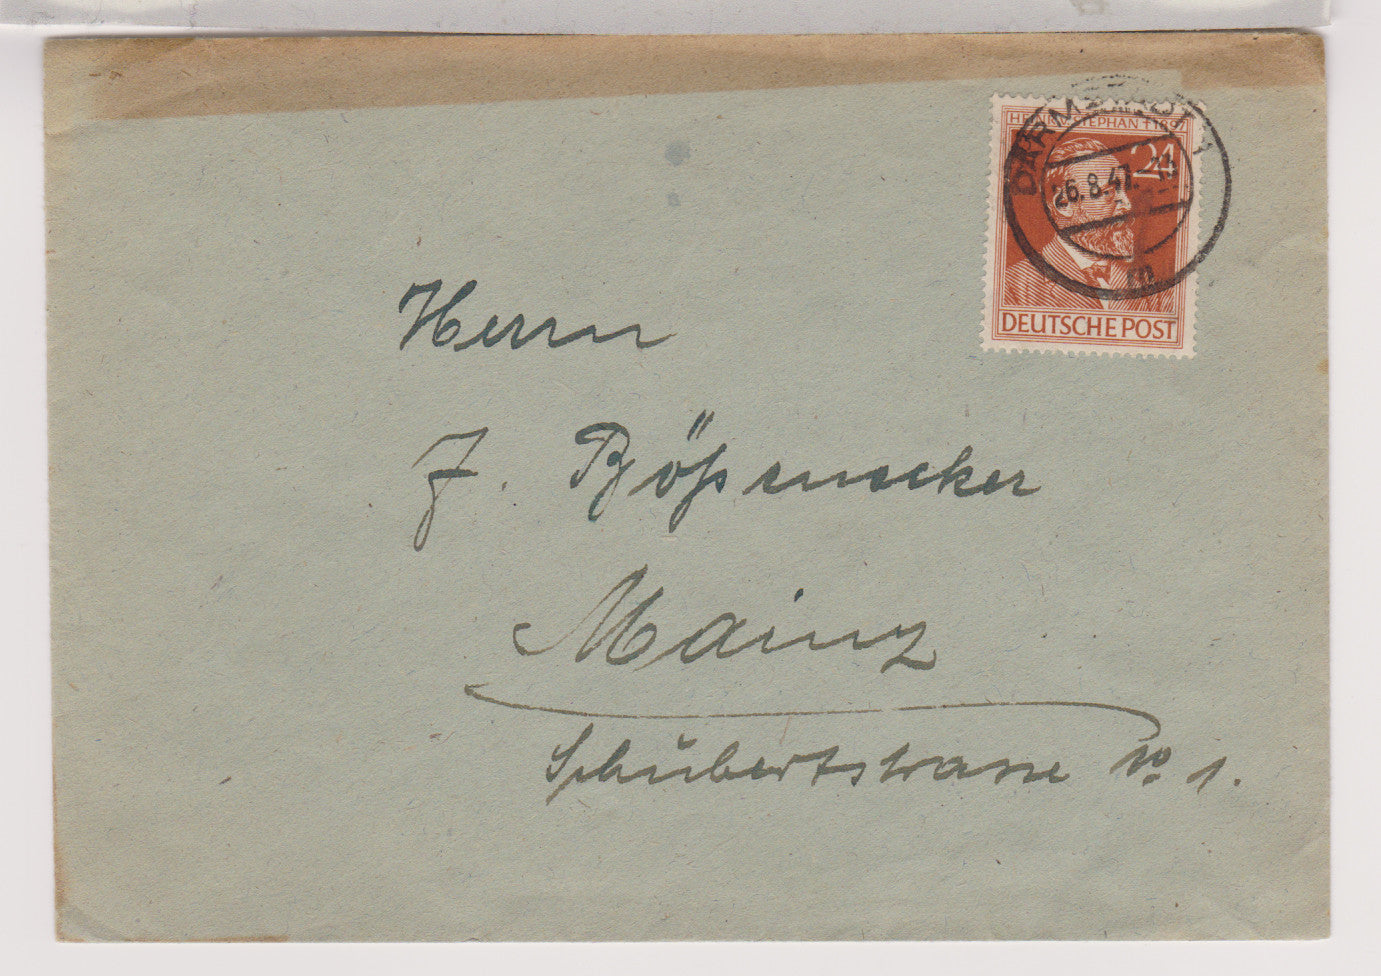 HEINR. STEPHAN † 1897
24
DEUTSCHE POST
DARMSTADT 1
26.8.47.
Herrn
J.
Mainz
Schŭbertstrasse No 1.